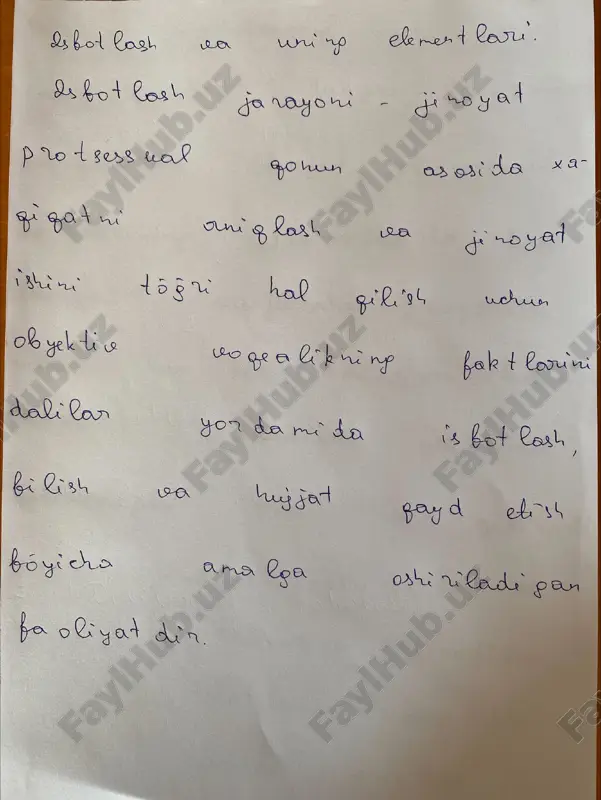 Isbotlash va uning elementlari.
Isbotlash jarayoni - jinoyat
protsessual qonun asosida xa-
qiqatni aniqlash va jinoyat
ishini tõg̃ri hal qilish uchun
obyektiv voqealikning faktlarini
dalilar yordamida isbotlash,
bilish va hujjat qayd etish
bõyicha amalga oshiriladigan
faoliyatdir.
FaylHub.uz
FaylHub.uz
FaylHub.uz
FaylHub.uz
FaylHub.uz
FaylHub.uz
FaylHub.uz
FaylHub.uz
FaylHub.uz